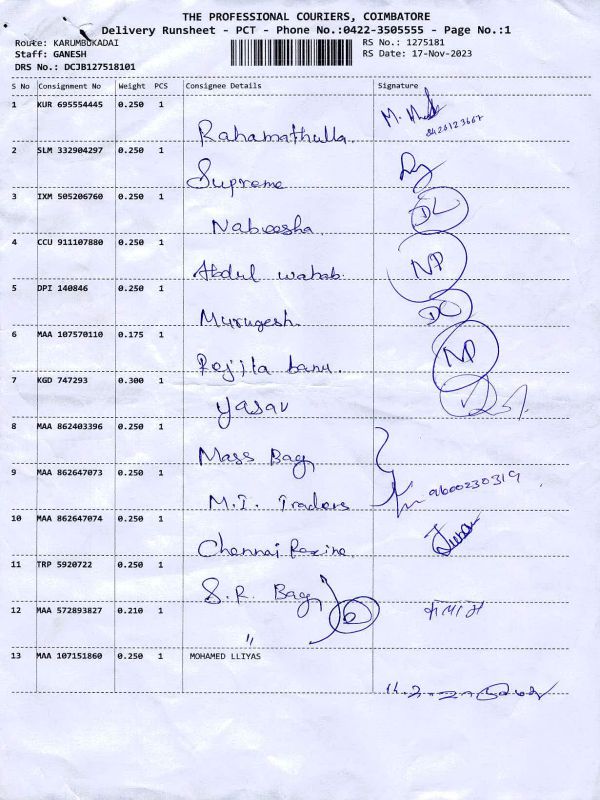 THE PROFESSIONAL COURIERS, COIMBATORE
Delivery Runsheet - PCT - Phone No.:0422-3505555 - Page No.:1
Route: KARUMBUKADAI RS No.: 1275181
Staff: GANESH RS Date: 17-Nov-2023
DRS No.: DCJB127518101
S No Consignment No Weight PCS Consignee Details Signature
1 KUR 695554445 0.250 1
Rahamathulla
2 SLM 332904297 0.250 1
Supreme
3 IXM 505206760 0.250 1
Nabeesha DL
4 CCU 911107880 0.250 1
Abdul wahab NP
5 DPI 140846 0.250 1
Murugesh DL
6 MAA 107570110 0.175 1
banu NP
7 KGD 747293 0.300 1
Yasar
8 MAA 862403396 0.250 1
Mass Bag
9 MAA 862647073 0.250 1
M.I. Traders 9600230319
10 MAA 862647074 0.250 1
Chennai Rexine
11 TRP 5920722 0.250 1
S.R. Bag
12 MAA 572893827 0.210 1
"
13 MAA 107151860 0.250 1 MOHAMED LLIYAS